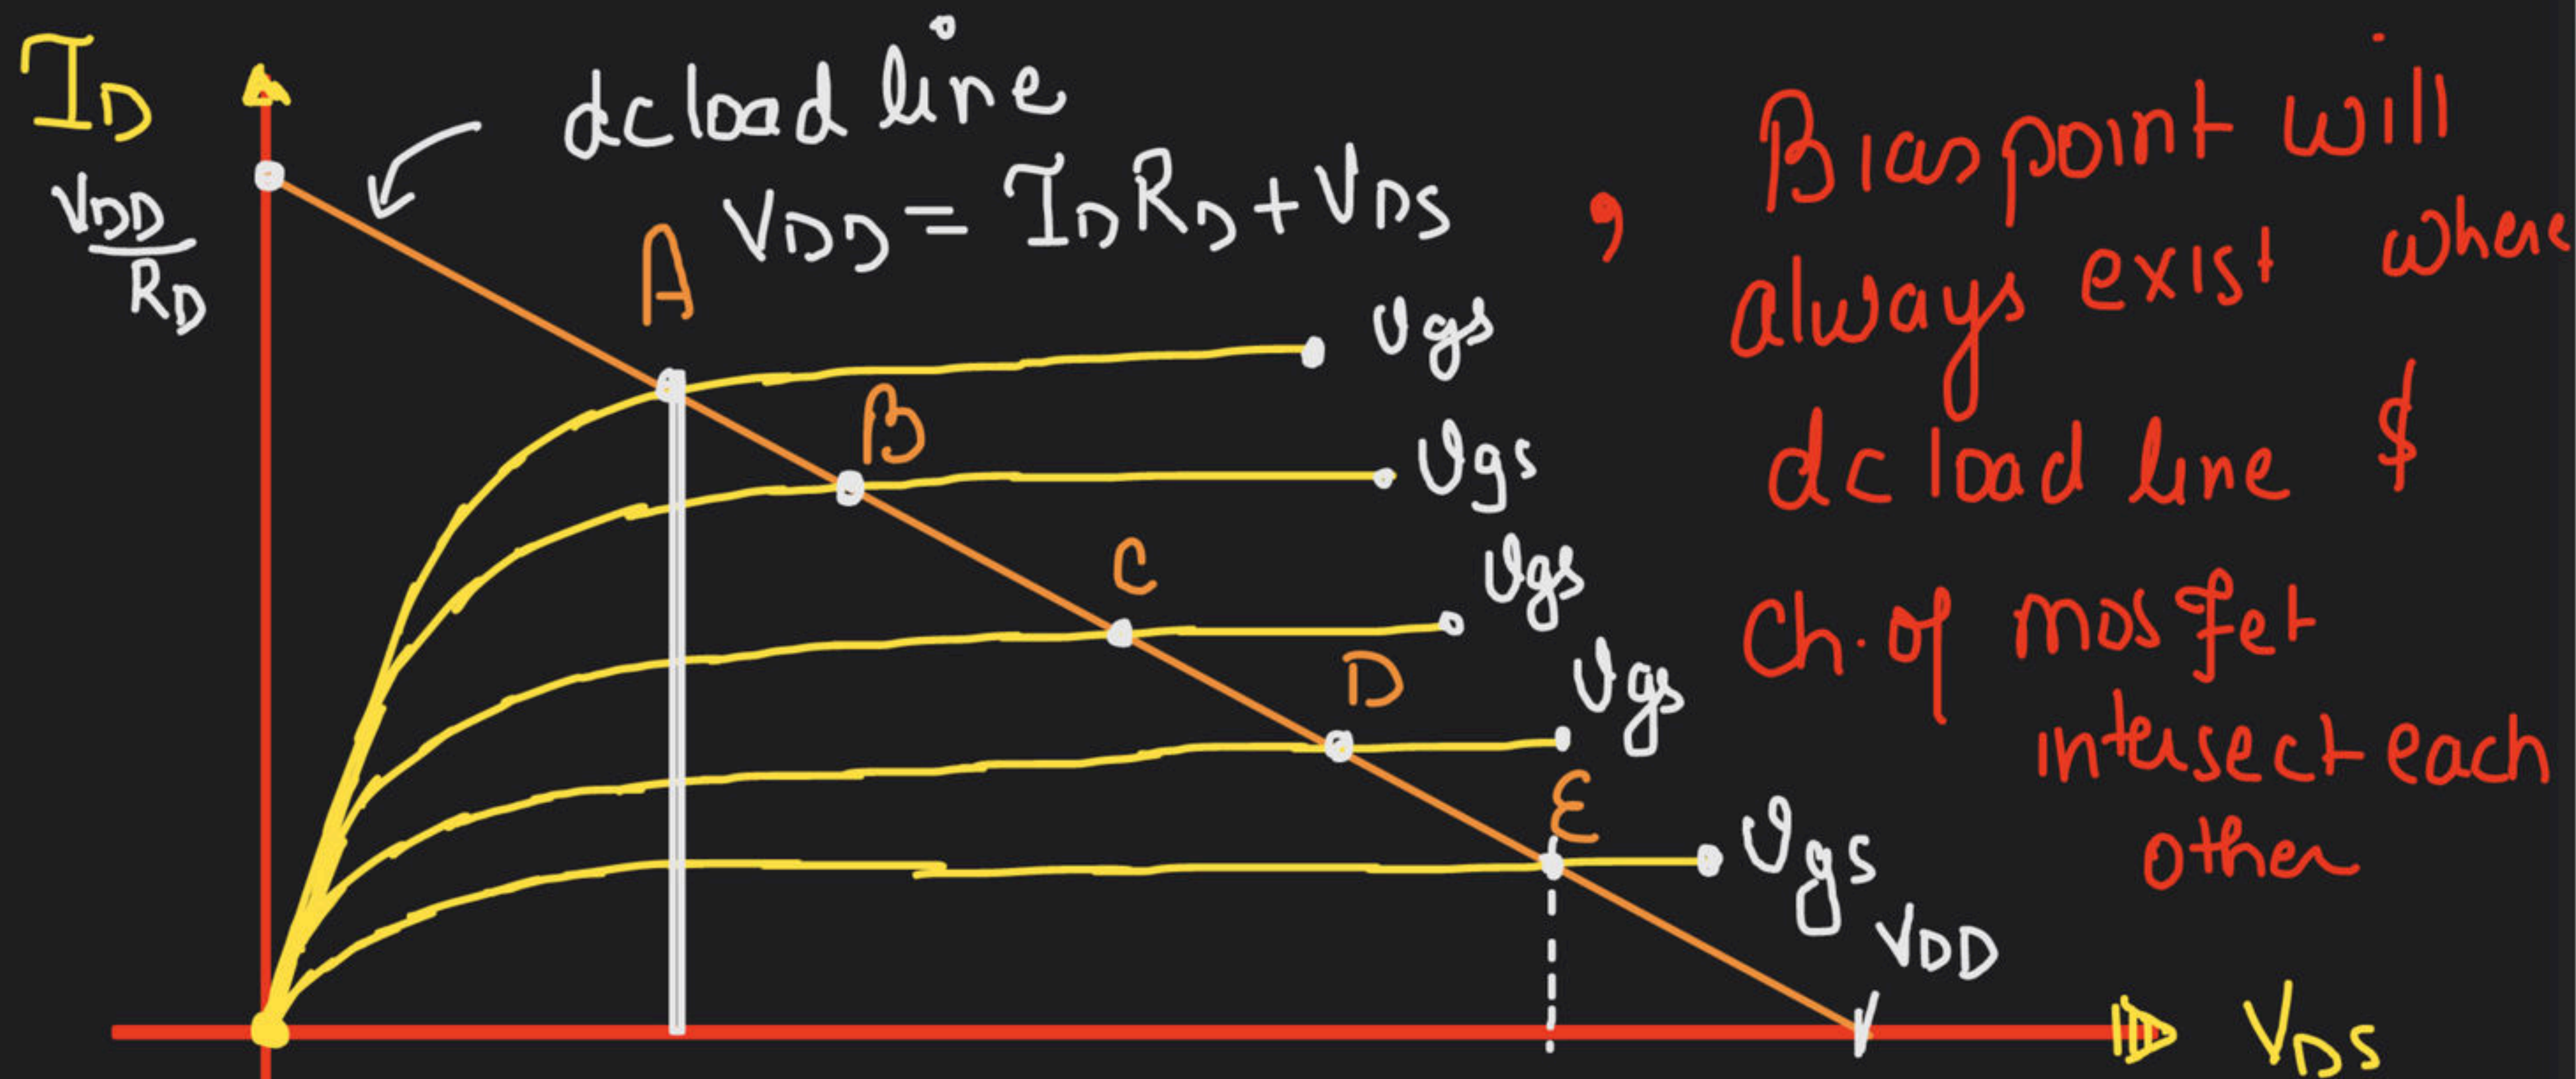 I_D
dc load line
V_DD / R_D
V_DD = I_D R_D + V_DS ,
A
Vgs
B
Vgs
C
Vgs
D
Vgs
E
Vgs
V_DD
V_DS
Bias point will
always exist where
dc load line &
Ch. of mosfet
intersect each
other